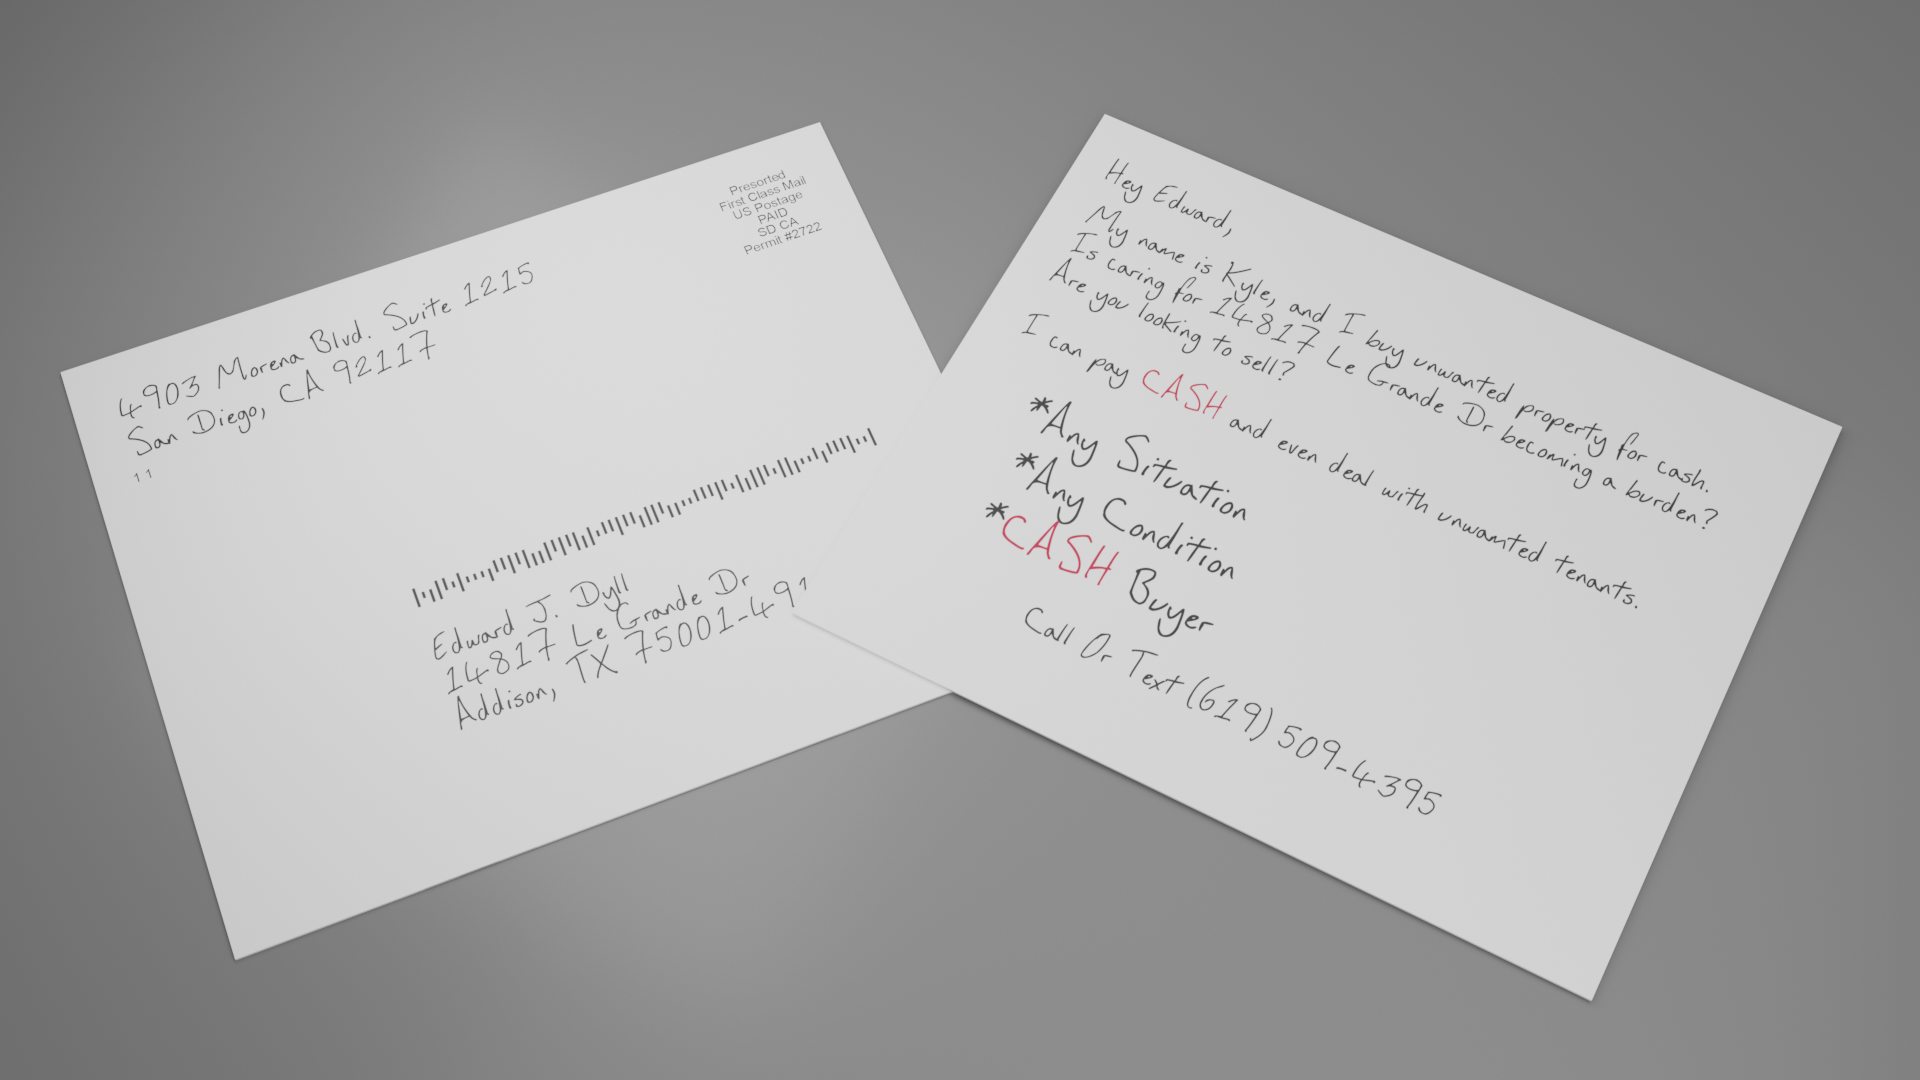 Presorted
First Class Mail
US Postage
PAID
SD CA
Permit #2722
4903 Morena Blvd. Suite 1215
San Diego, CA 92117
11
Edward J. Dyll
14817 Le Grande Dr
Addison, TX 75001-49
Hey Edward,
My name is Kyle, and I buy unwanted property for cash.
Is caring for 14817 Le Grande Dr becoming a burden?
Are you looking to sell?
I can pay CASH and even deal with unwamted tenants.
*Any Situation
*Any Condition
*CASH Buyer
Call Or Text (619) 509-4395